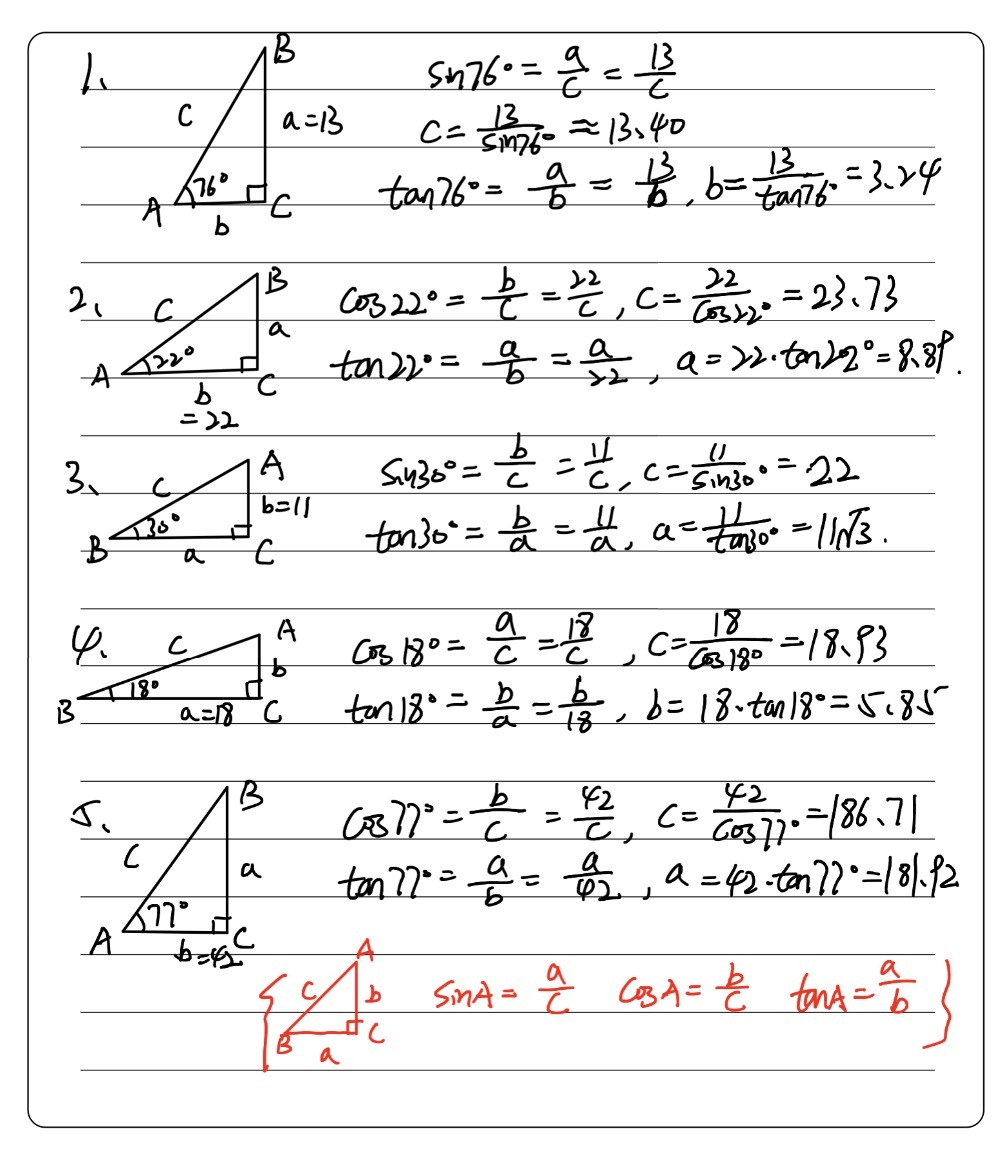 1、
B
c
a=13
76°
A
C
b
sin76° = a/c = 13/c
c = 13/sin76° ≈ 13、40
tan76° = a/b = 13/b , b = 13/tan76° = 3、24
2、
B
c
a
22°
A
C
b
= 22
cos22° = b/c = 22/c , c = 22/cos22° = 23、73
tan22° = a/b = a/22 , a = 22·tan22° = 8、89.
3、
A
c
b=11
30°
B
a
C
sin30° = b/c = 11/c , c = 11/sin30° = 22
tan30° = b/a = 11/a , a = 11/tan30° = 11√3.
4、
A
c
b
18°
B
a=18
C
cos18° = a/c = 18/c , c = 18/cos18° = 18、93
tan18° = b/a = b/18 , b = 18·tan18° = 5、85
5、
B
c
a
77°
A
C
b=42
cos77° = b/c = 42/c , c = 42/cos77° = 186、71
tan77° = a/b = a/42 , a = 42·tan77° = 181、92
{
A
c
b
B
C
a
sinA = a/c cosA = b/c tanA = a/b }